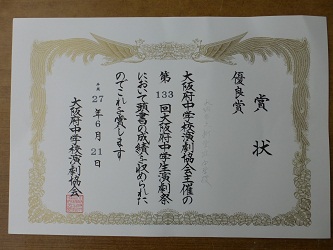 賞状
優良賞
大阪府中学校演劇協会主催の
第133回大阪府中学生演劇祭
において頭書の成績を収められた
のでこれを賞します
平成27年6月21日
大阪府中学校演劇協会